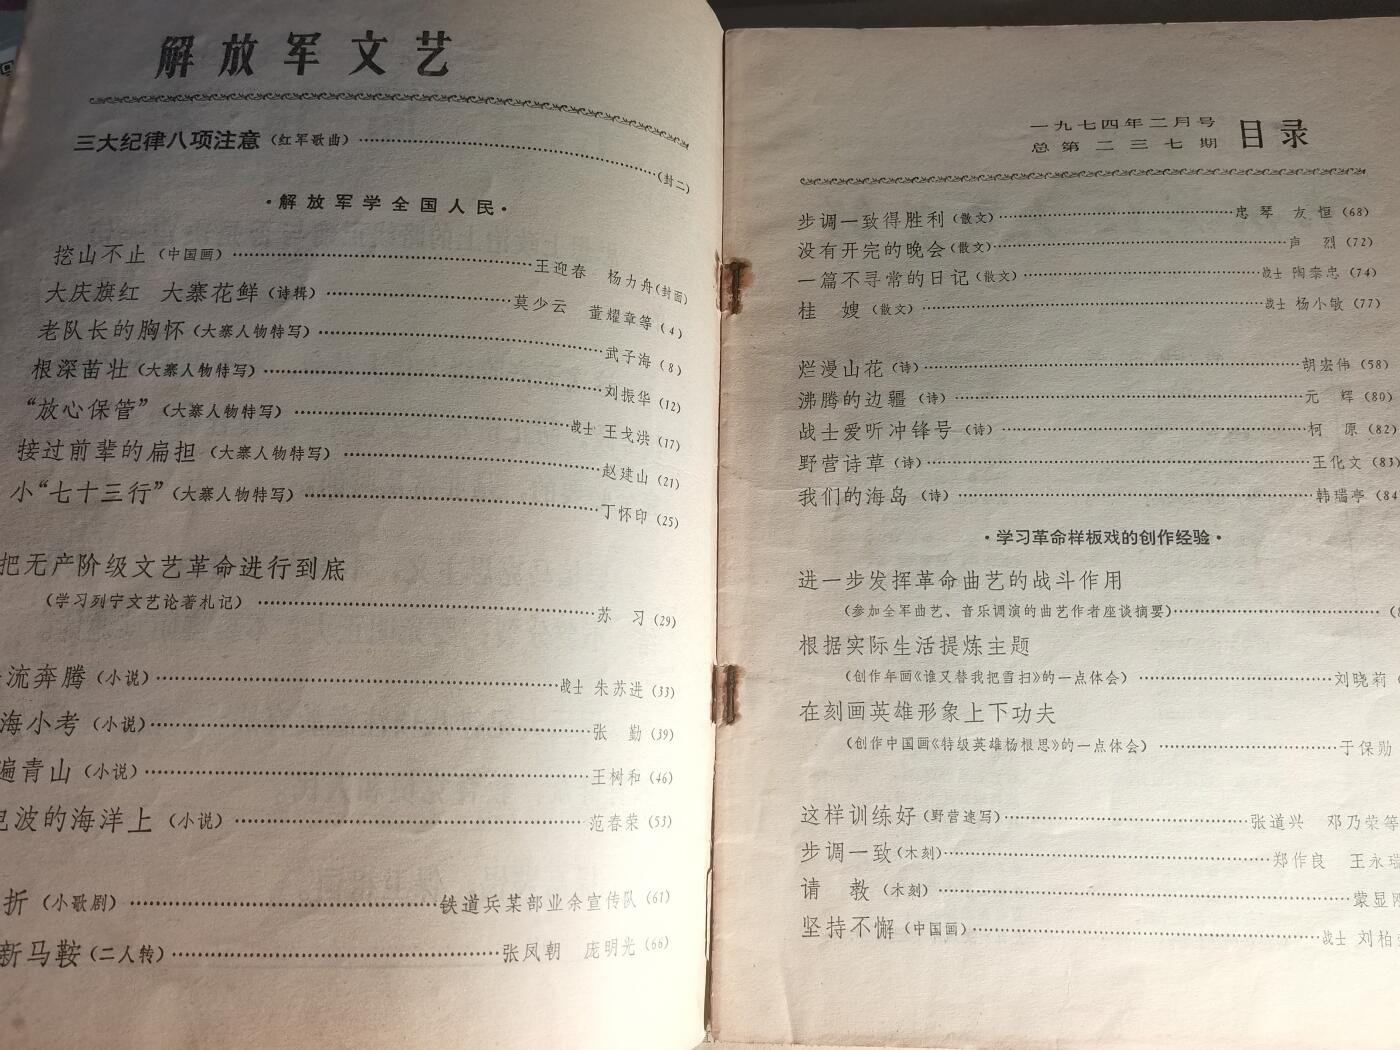 解放军文艺
三大纪律八项注意（红军歌曲）……（封二）
·解放军学全国人民·
挖山不止（中国画）……王迎春 杨力舟（封面）
大庆旗红 大寨花鲜（诗辑）……莫少云 董耀章等（4）
老队长的胸怀（大寨人物特写）……武子海（8）
根深苗壮（大寨人物特写）……刘振华（12）
“放心保管”（大寨人物特写）……战士 王戈洪（17）
接过前辈的扁担（大寨人物特写）……赵建山（21）
小“七十三行”（大寨人物特写）……丁怀印（25）
把无产阶级文艺革命进行到底
（学习列宁文艺论著札记）……苏 习（29）
流奔腾（小说）……战士 朱苏进（33）
海小考（小说）……张 勤（39）
遍青山（小说）……王树和（46）
波的海洋上（小说）……范春荣（53）
折（小歌剧）……铁道兵某部业余宣传队（61）
新马鞍（二人转）……张凤朝 庞明光（66）
一九七四年二月号
总第二三七期 目录
步调一致得胜利（散文）……忠 琴 友 恒（68）
没有开完的晚会（散文）……声 烈（72）
一篇不寻常的日记（散文）……战士 陶泰忠（74）
桂 嫂（散文）……战士 杨小敏（77）
烂漫山花（诗）……胡宏伟（58）
沸腾的边疆（诗）……元 辉（80）
战士爱听冲锋号（诗）……柯 原（82）
野营诗草（诗）……王化文（83）
我们的海岛（诗）……韩瑞亭（84
·学习革命样板戏的创作经验·
进一步发挥革命曲艺的战斗作用
（参加全军曲艺、音乐调演的曲艺作者座谈摘要）……
根据实际生活提炼主题
（创作年画《谁又替我把雪扫》的一点体会）……刘晓莉
在刻画英雄形象上下功夫
（创作中国画《特级英雄杨根思》的一点体会）……于保勋
这样训练好（野营速写）……张道兴 邓乃荣等
步调一致（木刻）……郑作良 王永瑞
请 教（木刻）……蒙显刚
坚持不懈（中国画）……战士 刘柏